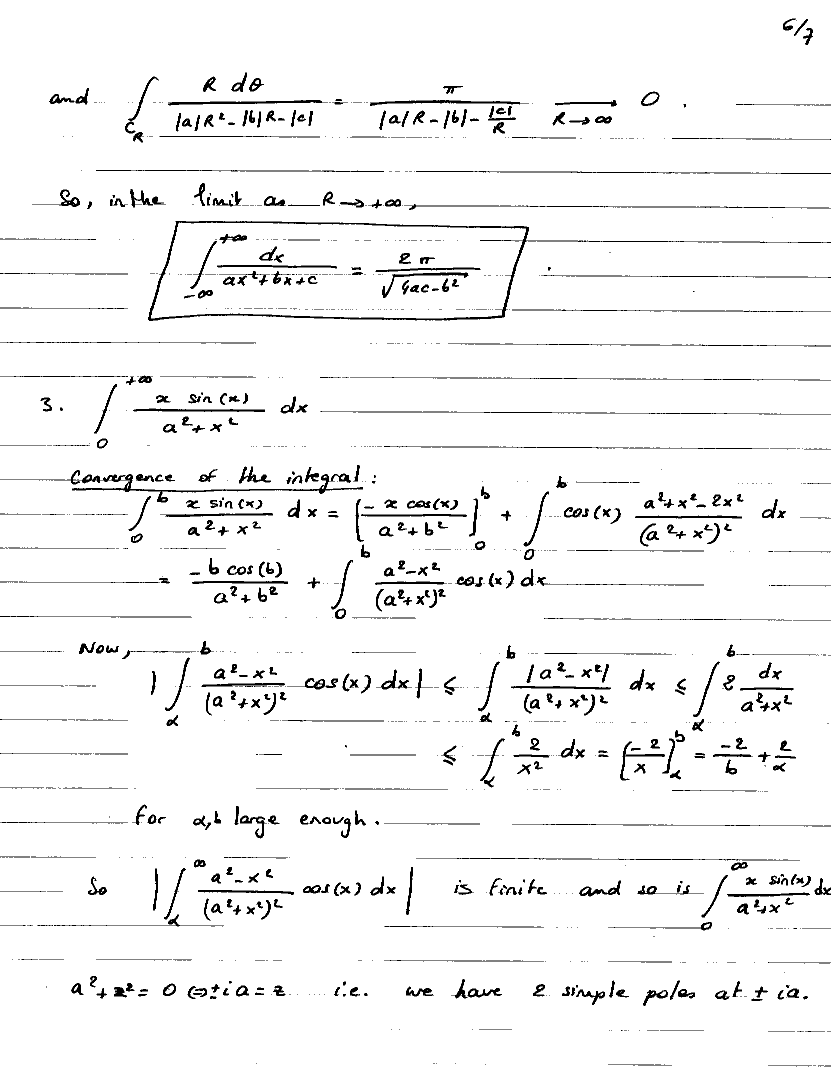 6/7
and ∫_{C_R} R dθ / (|a|R² - |b|R - |c|) = π / (|a|R - |b| - |c|/R) ⟶_{R→∞} 0 .
So, in the limit as R → +∞,
∫_{-∞}^{+∞} dx / (ax² + bx + c) = 2π / √(4ac - b²) .
3. ∫_0^{+∞} x sin(x) / (a² + x²) dx
Convergence of the integral :
∫_0^b x sin(x) / (a² + x²) dx = [ - x cos(x) / (a² + b²) ]_0^b + ∫_0^b cos(x) (a² + x² - 2x²) / (a² + x²)² dx
= - b cos(b) / (a² + b²) + ∫_0^b (a² - x²) / (a² + x²)² cos(x) dx
Now, | ∫_α^b (a² - x²) / (a² + x²)² cos(x) dx | ⩽ ∫_α^b |a² - x²| / (a² + x²)² dx ⩽ ∫_α^b 2 dx / (a² + x²)
⩽ ∫_α^b 2 / x² dx = [ -2 / x ]_α^b = -2 / b + 2 / α
for α, b large enough .
So | ∫_α^∞ (a² - x²) / (a² + x²)² cos(x) dx | is finite and so is ∫_0^∞ x sin(x) / (a² + x²) dx
a² + z² = 0 ⇔ ± ia = z i.e. we have 2 simple poles at ± ia.